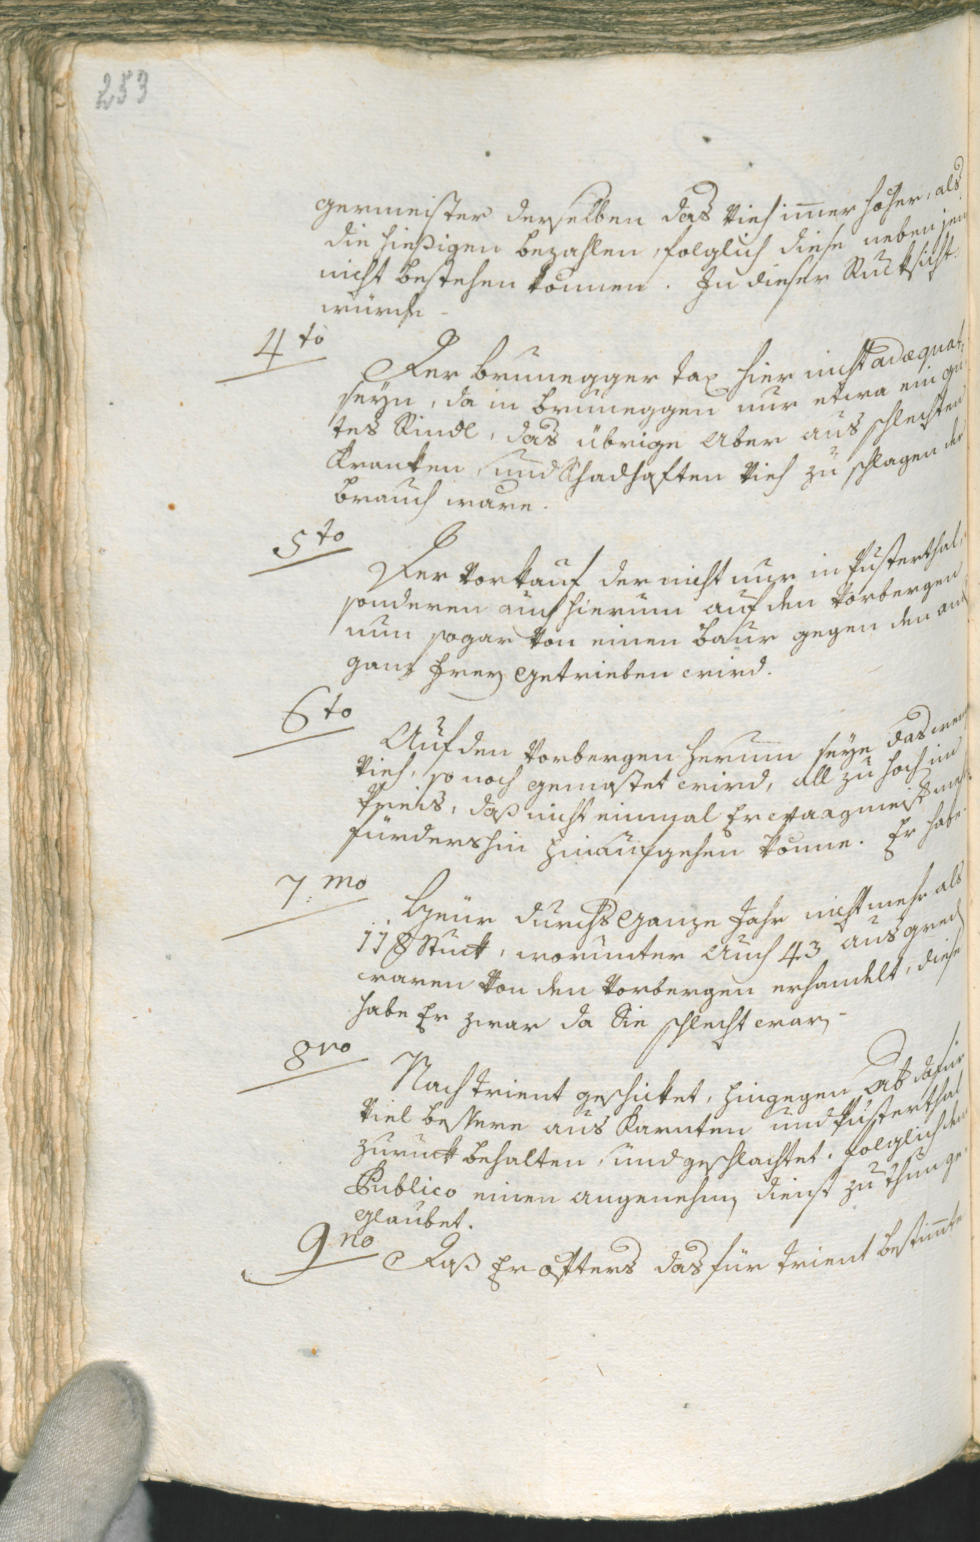 253
germeister derselben das Vieh im̅er höher, als
die hießigen bezahlen, folglich diese neben jen
nicht bestehen können. In dieser Rücksicht
würde
4to
Der brunegger tax hier nicht adæquat
seyn, da in bruneggen nur etwa ein gu
tes Rindl, das übrige aber aus schlechten
Kranken, und schadhaften Vieh zu schlagen der
brauch ware.
5to
Der Vorkauf der nicht nur in Pusterthal,
sonderen auch hierum auf den Vorbergen
nun sogar von einen baur gegen den an
ganz frey getrieben wird.
6to
Auf den Vorbergen herum seye das
Vieh, so noch gemästet wird, all zu hoch im
Preis, daß nicht einmal Er
fürdershin hinaufgehen könne. Er habe
7:mo
Heür durchs ganze Jahr nicht mehr als
118 Stuck, worunter auch 43
waren von den Vorbergen erhandelt, diese
habe Er zwar da Sie schlecht war,
8vo
Nach Trient geschicket, hingegen ab dafür
viel bessere aus Karnten und Pusterthal
zuruck behalten, und geschlachtet, folglich dem
Publico einen angenehm dienst zu thun ge
glaubet.
9no
Daß Er öfters das für Trient bestim̅te